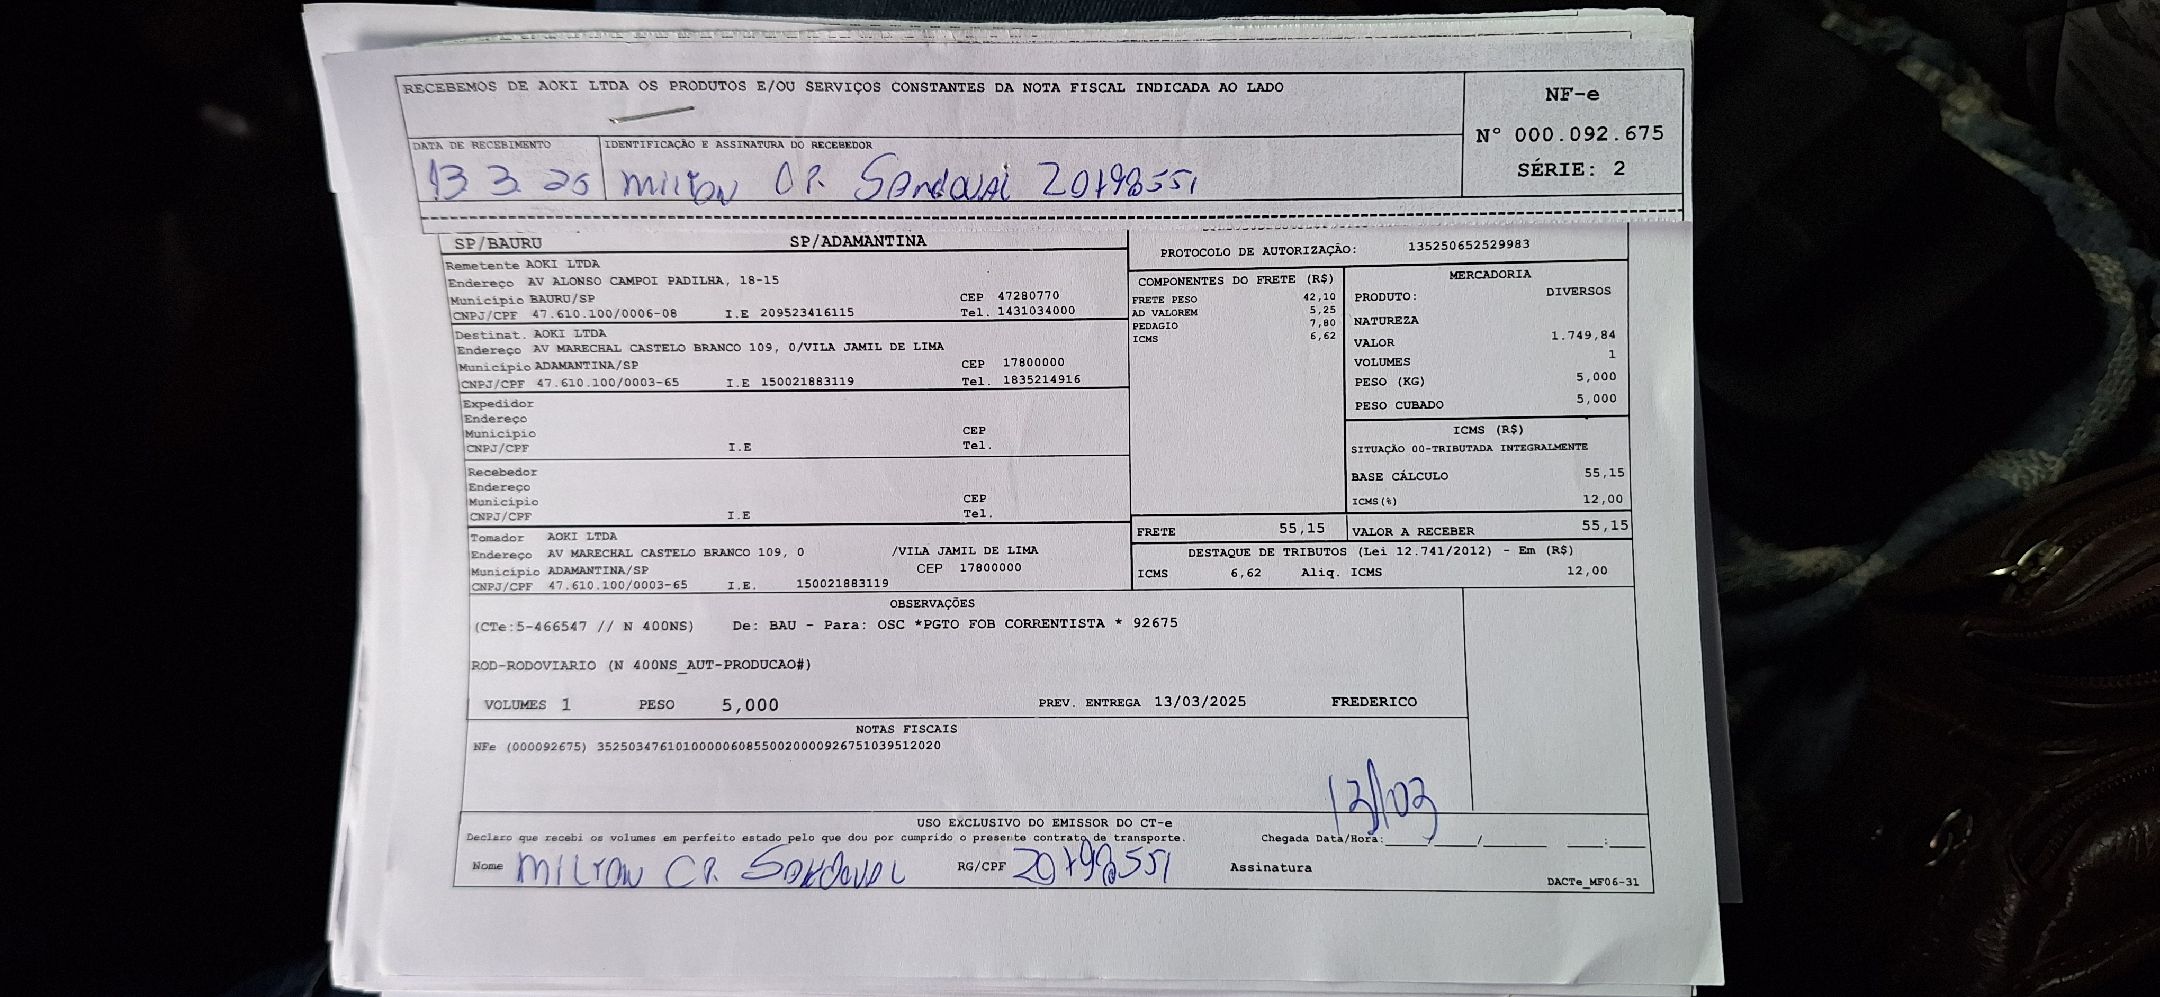 RECEBEMOS DE AOKI LTDA OS PRODUTOS E/OU SERVIÇOS CONSTANTES DA NOTA FISCAL INDICADA AO LADO
NF-e
Nº 000.092.675
SÉRIE: 2
DATA DE RECEBIMENTO IDENTIFICAÇÃO E ASSINATURA DO RECEBEDOR
13 3 25 MILTON CR. SANDOVAL 20798551
SP/BAURU SP/ADAMANTINA
Remetente AOKI LTDA
Endereço AV ALONSO CAMPOI PADILHA, 18-15
Município BAURU/SP CEP 47280770
CNPJ/CPF 47.610.100/0006-08 I.E 209523416115 Tel. 1431034000
Destinat. AOKI LTDA
Endereço AV MARECHAL CASTELO BRANCO 109, 0/VILA JAMIL DE LIMA
Município ADAMANTINA/SP CEP 17800000
CNPJ/CPF 47.610.100/0003-65 I.E 150021883119 Tel. 1835214916
Expedidor
Endereço
Município CEP
CNPJ/CPF I.E Tel.
Recebedor
Endereço
Município CEP
CNPJ/CPF I.E Tel.
Tomador AOKI LTDA
Endereço AV MARECHAL CASTELO BRANCO 109, 0 /VILA JAMIL DE LIMA
Município ADAMANTINA/SP CEP 17800000
CNPJ/CPF 47.610.100/0003-65 I.E. 150021883119
PROTOCOLO DE AUTORIZAÇÃO: 135250652529983
COMPONENTES DO FRETE (R$)
FRETE PESO 42,10
AD VALOREM 5,25
PEDAGIO 7,80
ICMS 6,62
MERCADORIA
PRODUTO: DIVERSOS
NATUREZA
VALOR 1.749,84
VOLUMES 1
PESO (KG) 5,000
PESO CUBADO 5,000
ICMS (R$)
SITUAÇÃO 00-TRIBUTADA INTEGRALMENTE
BASE CÁLCULO 55,15
ICMS(%) 12,00
FRETE 55,15 VALOR A RECEBER 55,15
DESTAQUE DE TRIBUTOS (Lei 12.741/2012) - Em (R$)
ICMS 6,62 Aliq. ICMS 12,00
OBSERVAÇÕES
(CTe:5-466547 // N 400NS) De: BAU - Para: OSC *PGTO FOB CORRENTISTA * 92675
ROD-RODOVIARIO (N 400NS_AUT-PRODUCAO#)
VOLUMES 1 PESO 5,000 PREV. ENTREGA 13/03/2025 FREDERICO
NOTAS FISCAIS
NFe (000092675) 35250347610100000608550020000926751039512020
13/03
USO EXCLUSIVO DO EMISSOR DO CT-e
Declaro que recebi os volumes em perfeito estado pelo que dou por cumprido o presente contrato de transporte. Chegada Data/Hora:____/____ __:__
Nome MILTON CR. SANDOVAL RG/CPF 20798551 Assinatura
DACTe_MF06-31